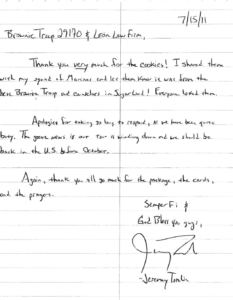 7/15/11
Brownie Troop 29170 & Leon Law Firm,
Thank you very much for the cookies! I shared them
with my squad of Marines and let them know it was from the
best Brownie Troop and in Sugarland! Everyone loved them.
Apologies for taking so long to respond, as we have been quite
busy. The good news is our tour is winding down and we should be
back in the U.S. before October.
Again, thank you all so much for the package, the cards,
and the prayers.
Semper Fi &
God Bless you guys,